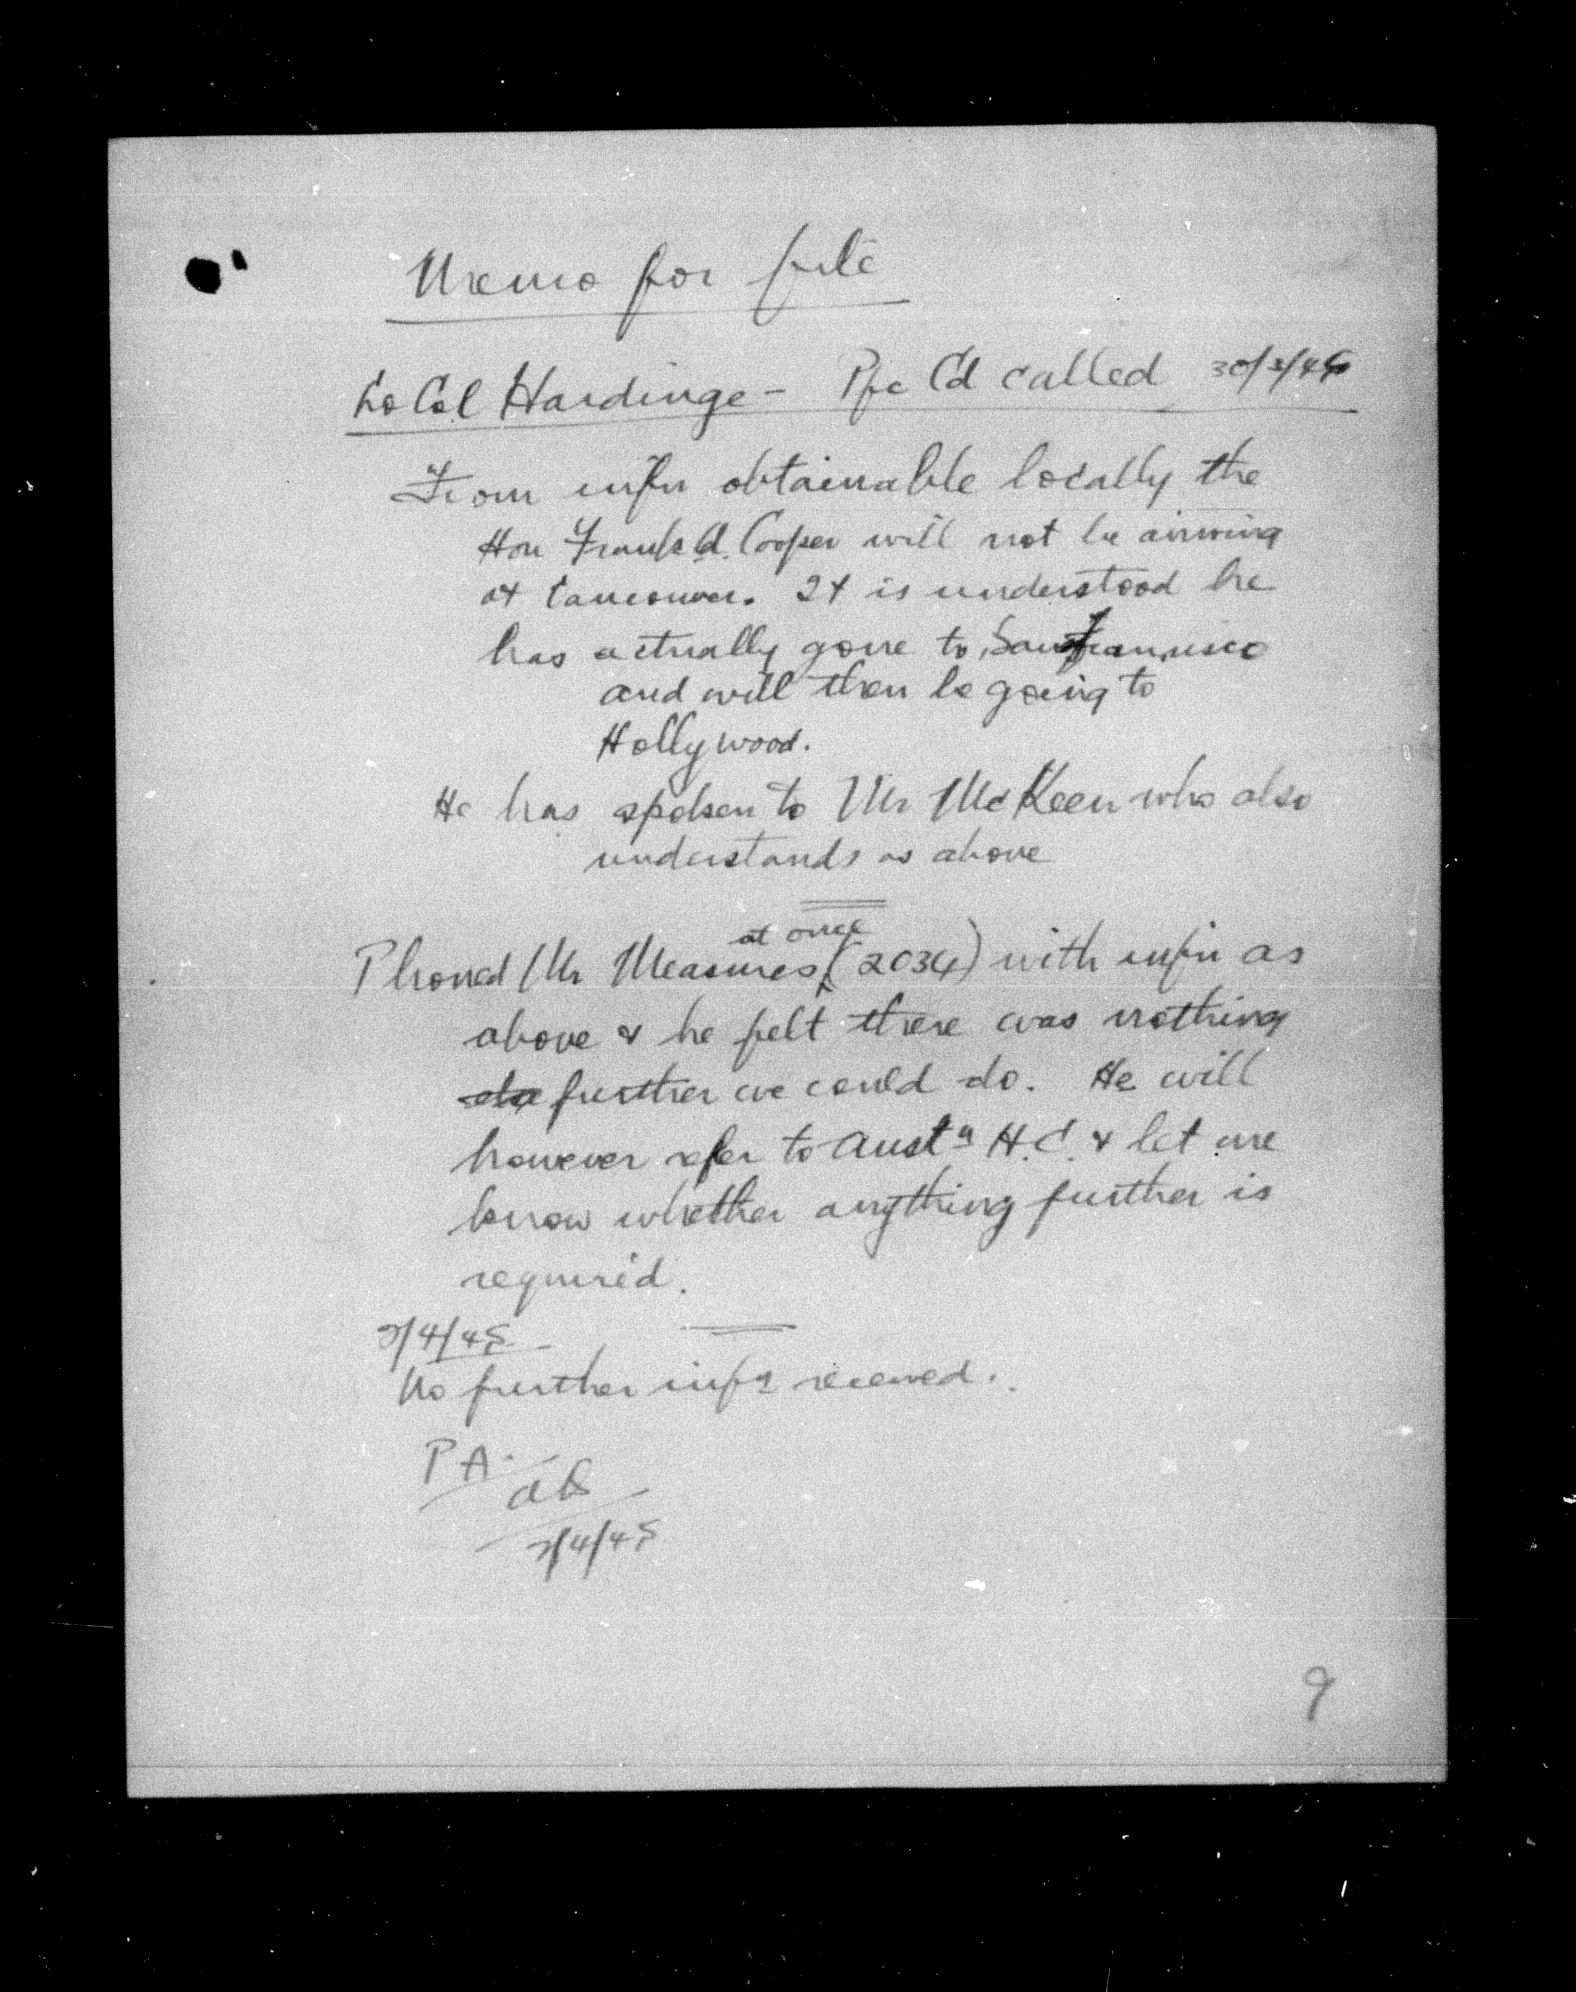 Memo for file
Lt Col Hardinge - Pac Cd called 30/3/45
From infn obtainable locally the
Hon Frank A. Cooper will not be arriving
at Vancouver. It is understood he
has actually gone to San Francisco
and will then be going to
Hollywood.
He has spoken to Mr McKeen who also
understands as above
at once
Phoned Mr Measures (2034) with infn as
above & he felt there was nothing
further we could do. He will
however refer to Austn H.C. & let me
know whether anything further is
required.
2/4/45
No further infn received.
P A.
2/4/45
9